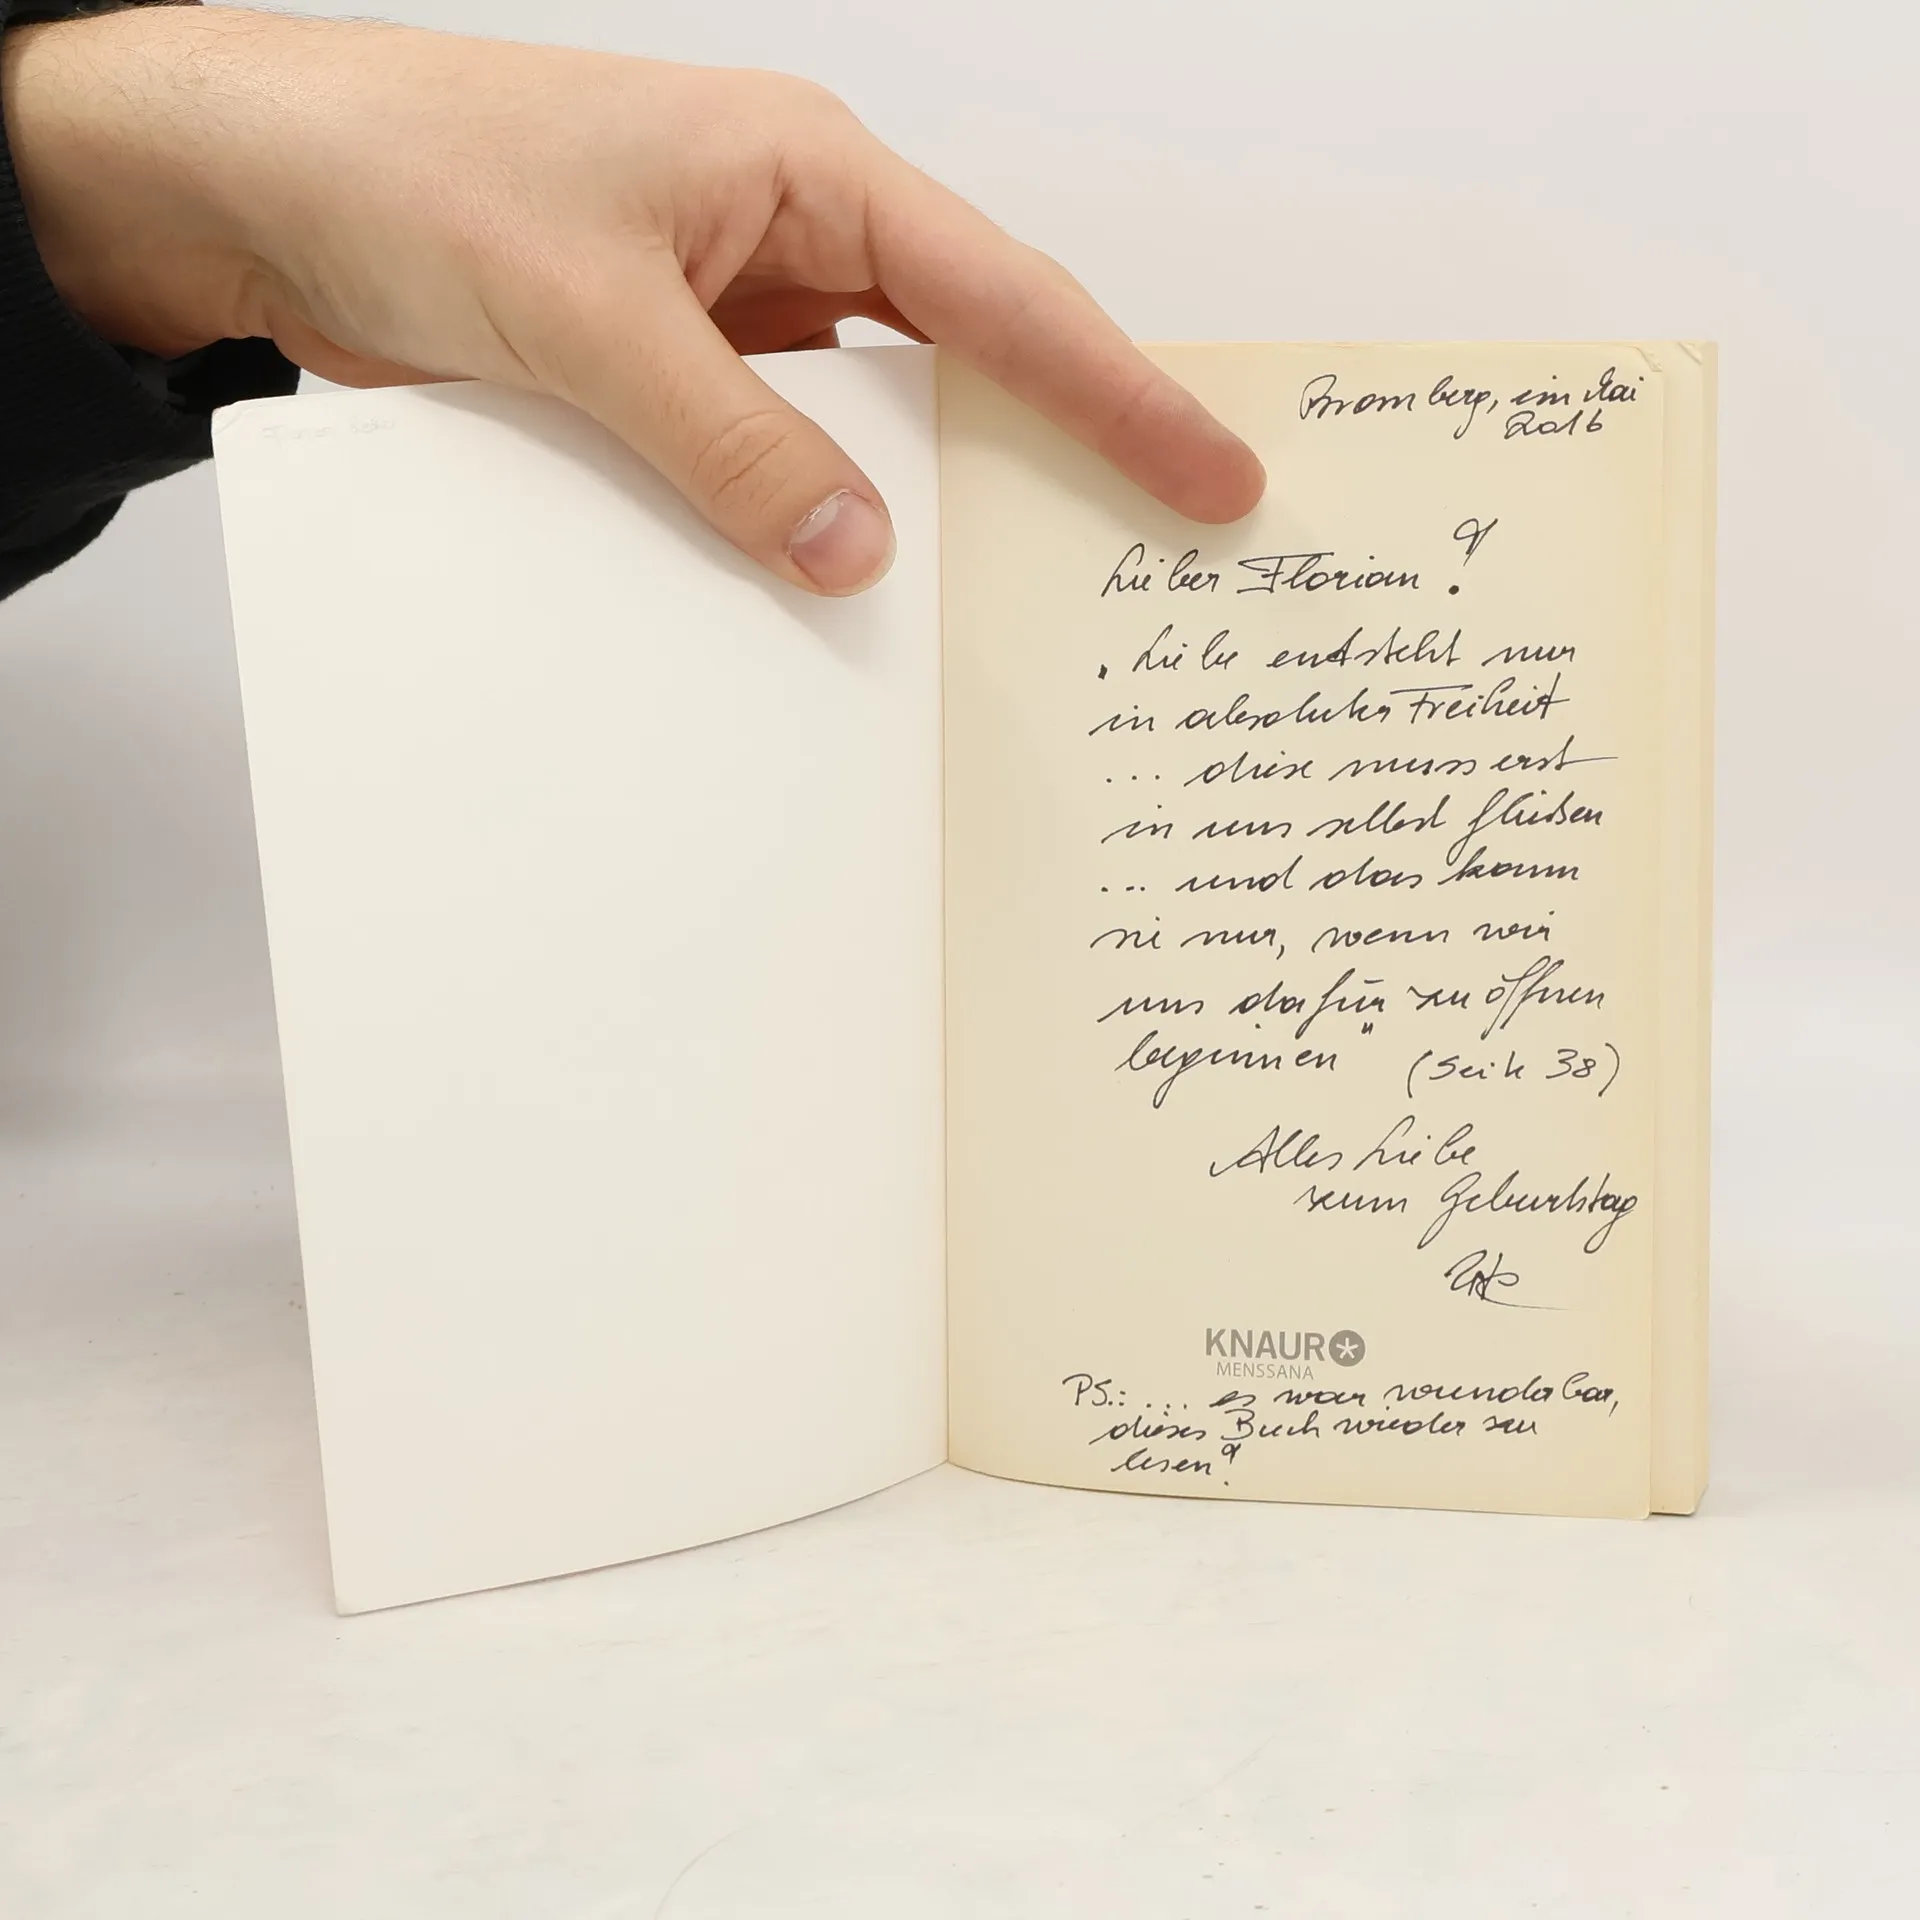 Bromberg, im Mai
2016
Lieber Florian!
"Liebe entsteht nur
in absoluter Freiheit
... diese muss erst
in uns selbst fließen
... und das kann
sie nur, wenn wir
uns dafür zu öffnen
beginnen" (Seite 38)
Alles Liebe
zum Geburtstag
KNAUR
MENSSANA
PS.: ... es war wunderbar,
dieses Buch wieder zu
lesen!